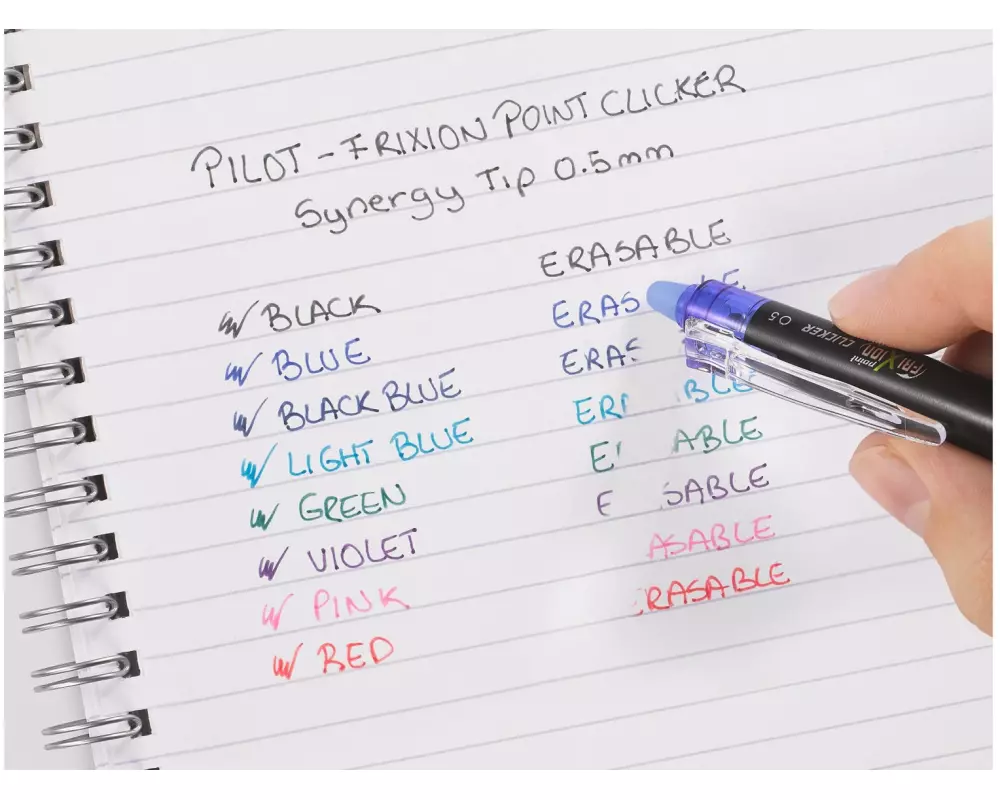 PILOT - FRIXION POINT CLICKER
Synergy Tip 0.5mm
ERASABLE
BLACK
ERAS BLE
BLUE
ERAS
BLACK BLUE
ER BLE
LIGHT BLUE
E ABLE
GREEN
E SABLE
VIOLET
ASABLE
PINK
RASABLE
RED
FRIXION point CLICKER 05